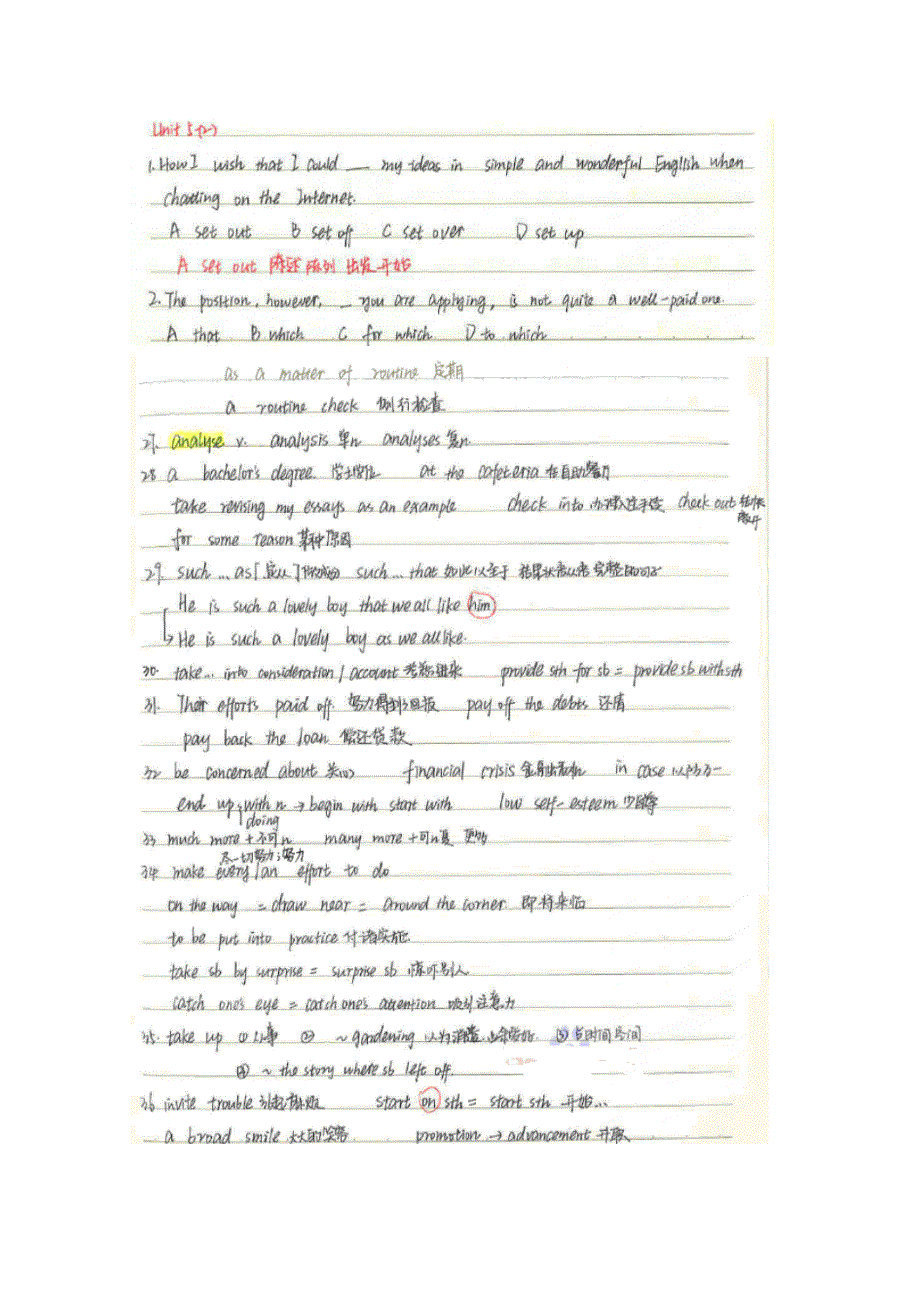 Unit 5 (2)
1. How I wish that I could __ my ideas in simple and wonderful English when
chatting on the Internet.
A set out B set off C set over D set up
A set out 陈述 陈列 出发 开始
2. The position, however, _ you are applying, is not quite a well-paid one.
A that B which C for which D to which
as a matter of routine 定期
a routine check 例行检查
27. analyse v. analysis 单n analyses 复n
28 a bachelor's degree 学士学位 at the cafeteria 在自助餐厅
take revising my essays as an example check into 办理入住手续 check out 结帐离开
for some reason 某种原因
29. such ... as [定从] 作成份 such ... that 如此以至于 结果状语从句 完整的句子
He is such a lovely boy that we all like him
He is such a lovely boy as we all like.
30. take ... into consideration / account 考虑进来 provide sth for sb = provide sb with sth
31. Their efforts paid off. 努力得到了回报 pay off the debts 还债
pay back the loan 偿还贷款
32 be concerned about 关心 financial crisis 金融危机 in case 以防万一
end up with n → begin with start with low self-esteem 少自尊
doing
33 much more + 不可n many more + 可n复 更多
尽一切努力；努力
34 make every/an effort to do
on the way = draw near = around the corner 即将来临
to be put into practice 付诸实施
take sb by surprise = surprise sb 惊吓别人
catch one's eye = catch one's attention 吸引注意力
35. take up ① 从事 ② ~ gardening 以为消遣 业余爱好 ③ 占时间空间
④ ~ the story where sb left off.
36 invite trouble 引起麻烦 start on sth = start sth 开始...
a broad smile 大大的笑容 promotion → advancement 升职